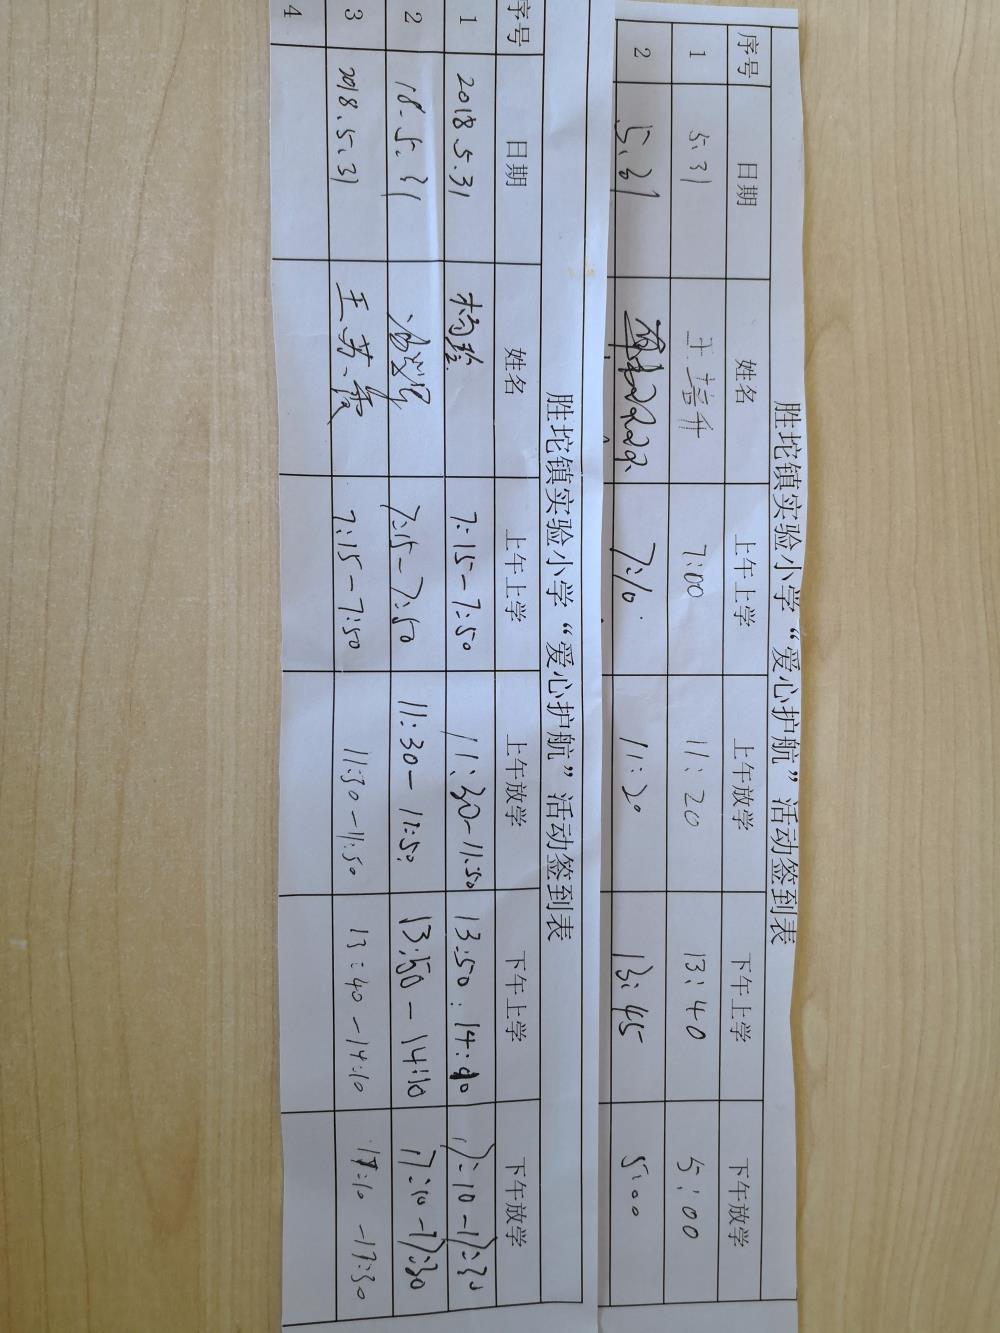 胜坨镇实验小学“爱心护航”活动签到表
序号 日期 姓名 上午上学 上午放学 下午上学 下午放学
1 5.31 王培升 7:00 11:20 13:40 5:00
2 5.31 7:10 11:20 13:45 5:00
胜坨镇实验小学“爱心护航”活动签到表
序号 日期 姓名 上午上学 上午放学 下午上学 下午放学
1 2018.5.31 杨玲 7:15-7:50 11:30-11:50 13:50:14:10 17:10-17:30
2 18.5.31 7:15-7:50 11:30-11:50 13:50-14:10 17:10-17:30
3 2018.5.31 王 7:15-7:50 11:30-11:50 13:40-14:10 17:10-17:30
4